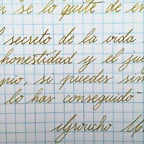 se lo quite de en
l secreto de la vida
honestidad y el jue
gio, si puedes sim
lo has conseguido"
Groucho M